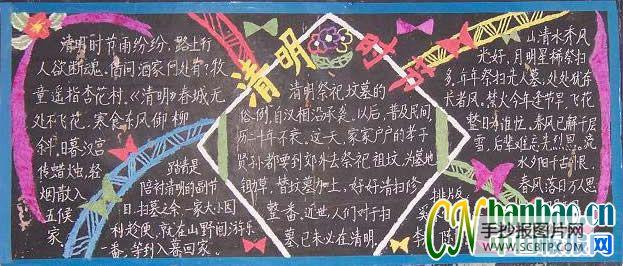 清明
清明时节雨纷纷，路上行
人欲断魂。借问酒家何处有？牧
童遥指杏花村。《清明》春城无
处不飞花，寒食东风御柳
斜，日暮汉宫
传蜡烛，轻
烟散入
五侯
家
踏青是
陪衬清明的副节
日，扫墓之余，一家大小图
利趁便，就在山野间游乐
一番，等到入暮回家。
清明祭祀坟墓的
俗例，自汉相沿承袭。以后，普及民间，
历二千年不衰。这天，家家户户的孝子
贤孙都要到郊外去祭祀祖坟，为墓地
锄草，替坟墓加土，好好清扫修
整一番。近世，人们对于扫
墓，已未必在清明。
山清水秀风
光好，月明星稀祭扫
多，年年祭扫先人墓，处处犹存
长者风。禁火今年逢节早，飞花
整日
春风已解千层
雪，后辈难忘先烈恩。流
水夕阳千古恨，
春风落日万人思
排版
CNbanbao.cn
手抄报图片网
WWW.SCBTP.COM